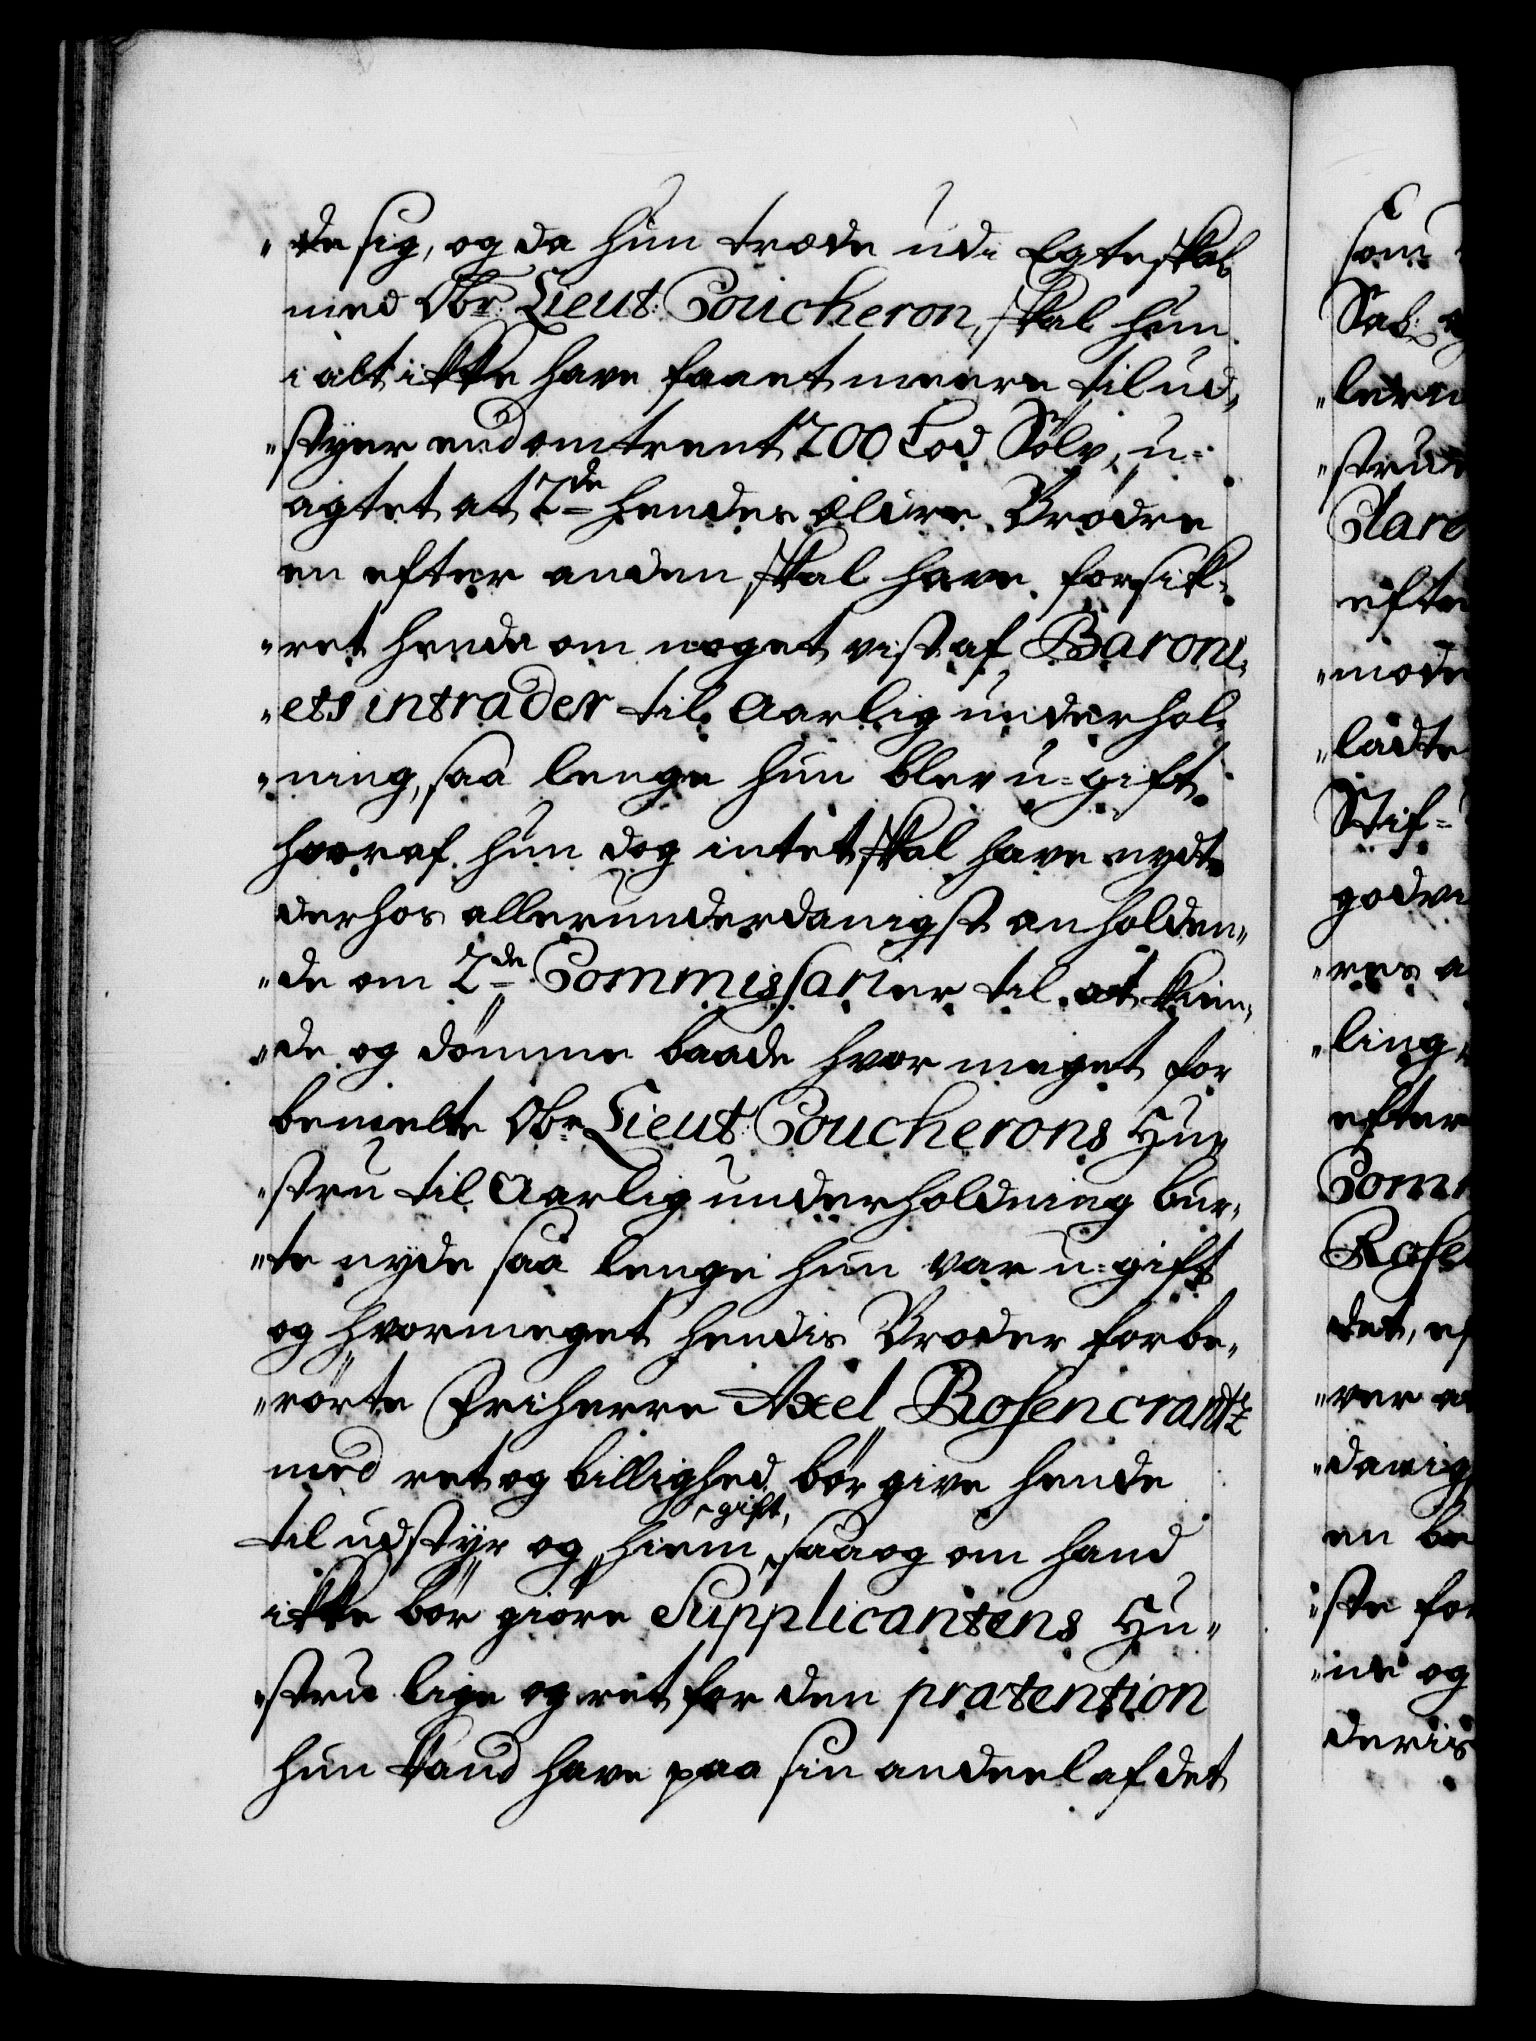 "de sig, og da hun træde udi Egteskab
med Obr: Lieut: Coucheron, skal hun
i alt ikke have faaet meere til ud„
„styer end omtrent 200 Lod Sölv, u=
agtet at 2de hendes ældre Brödre
en efter anden skal have forsik„
„ret hende om noget vist af Baroni„
„ets intrader til Aarlig underhol„
„ning, saa lenge hun blev u=gift
hvoraf hun dog intet skal have nydt
derhos allerunderdanigst anholden„
„de om 2de Commissarier til at kien„
„de og dömme baade hvor meget for
bemelte Obr: Lieut: Coucherons Hu„
„stru til Aarlig underholdning bur„
„te nyde saa lenge hun var u=gift
og hvormeget hendis Broder forbe„
„rörte Friherre Axel Rosencrantz
med ret og billighed bör give hende
til udstÿr og hiem gift, saa og om hand
ikke bör giöre Supplicantens Hu„
„stru lige og ret for den prætention
hun kand have paa sin andeel af det
som
Sab
„
„stru
Clare
efte
„mode
„ladte
Stif=
godvi
„res a
„ling
efter
Comm
Rose
det, ef
„ver a
„danig
en be
„ste for
„ne og
deris